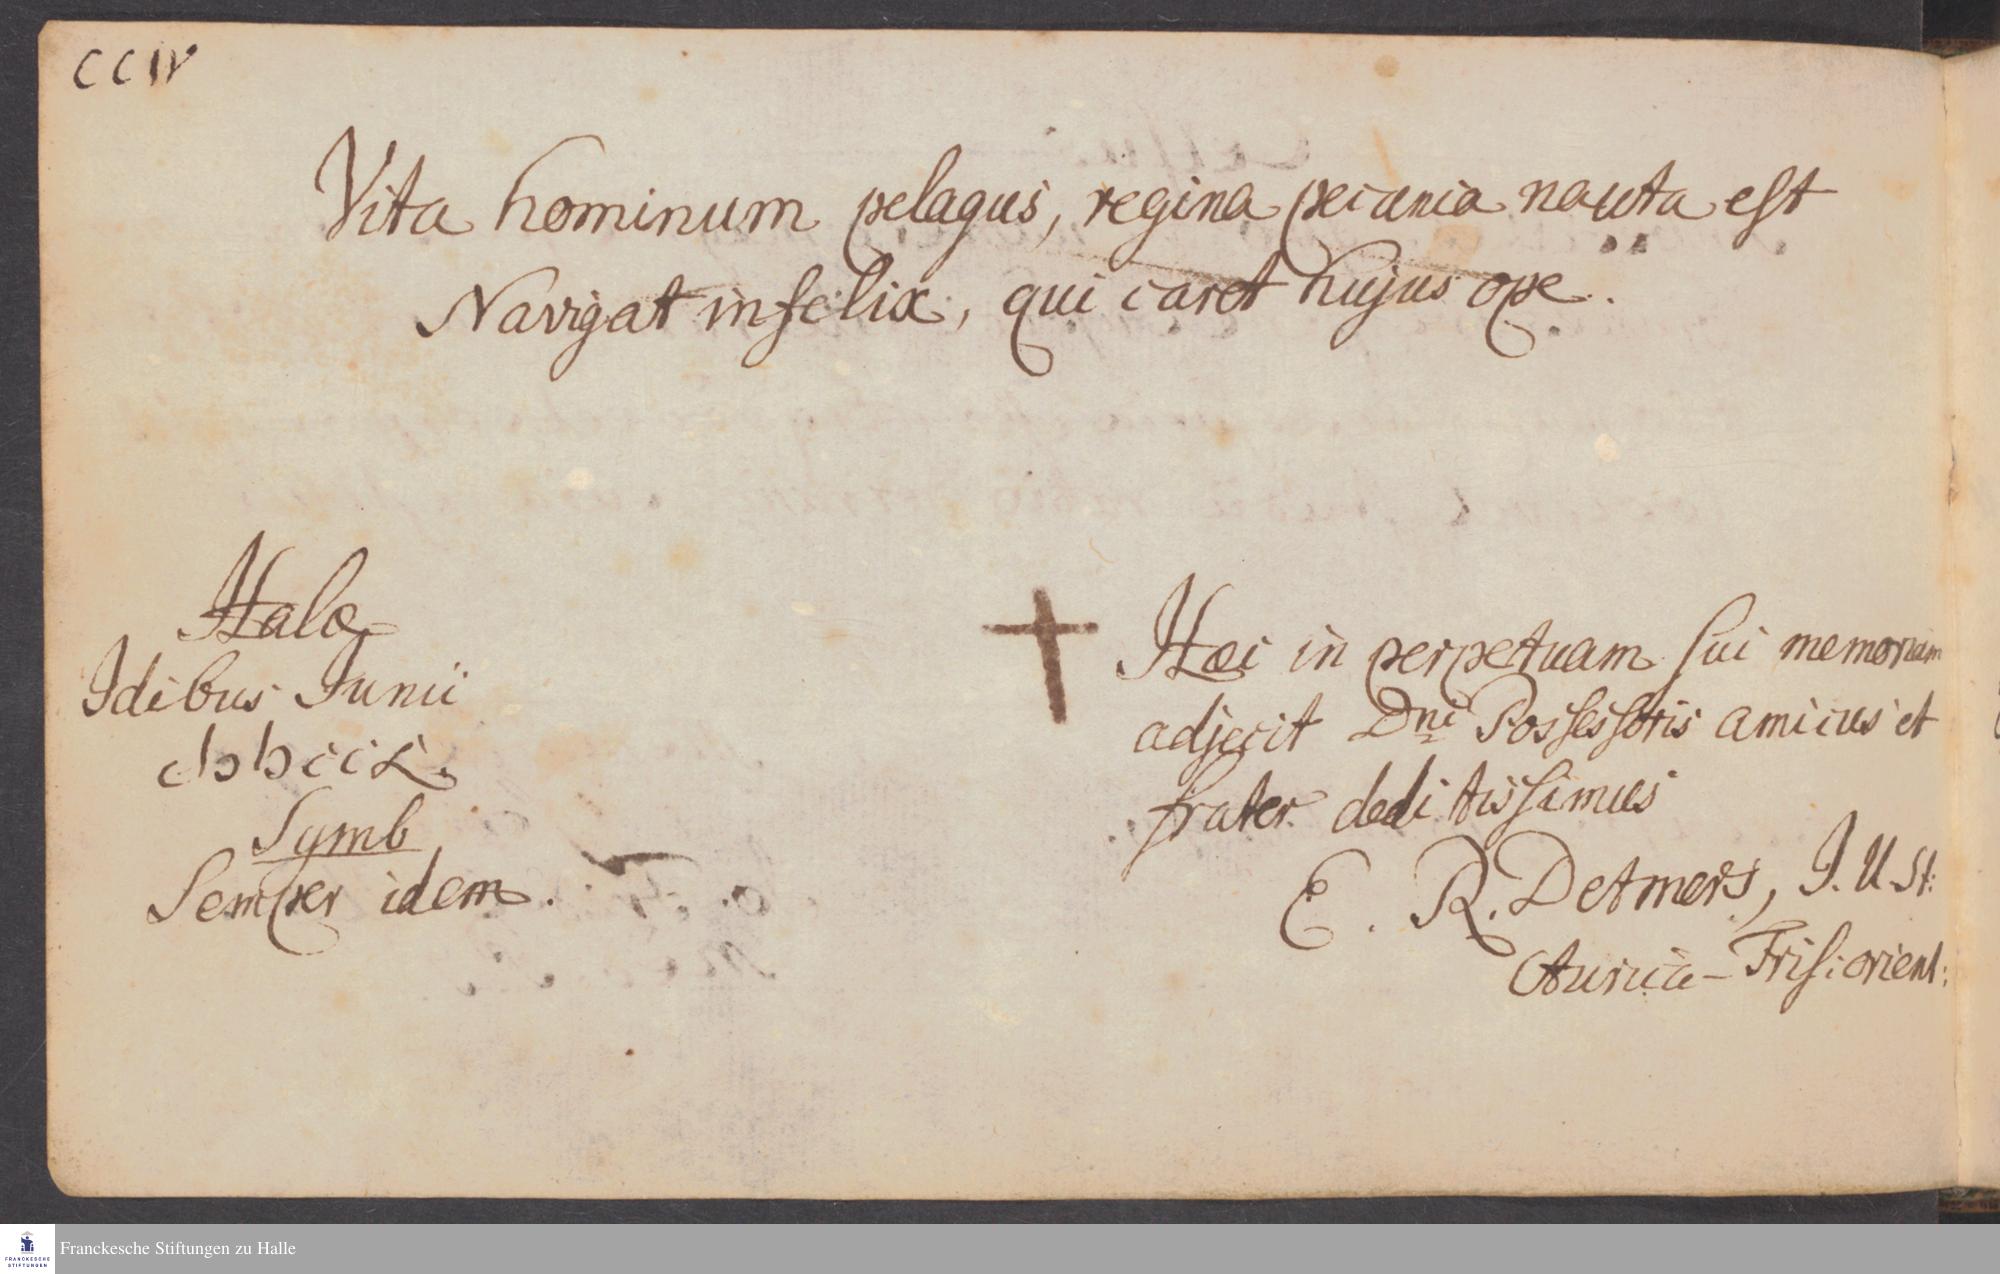 CCIV
Vita hominum pelagus, regina pecunia nauta est
Navigat infelix, qui caret hujus ope.
Halæ
Idibus Junii
Symb
Semper idem.
Hæc in perpetuam sui memoriam
adjecit Dni Possessoris amicus et
frater deditissimus
E. R. Detmers, J. U. St:
Auricâ-Frisiorient:
FRANCKESCHE
STIFTUNGEN
Franckesche Stiftungen zu Halle